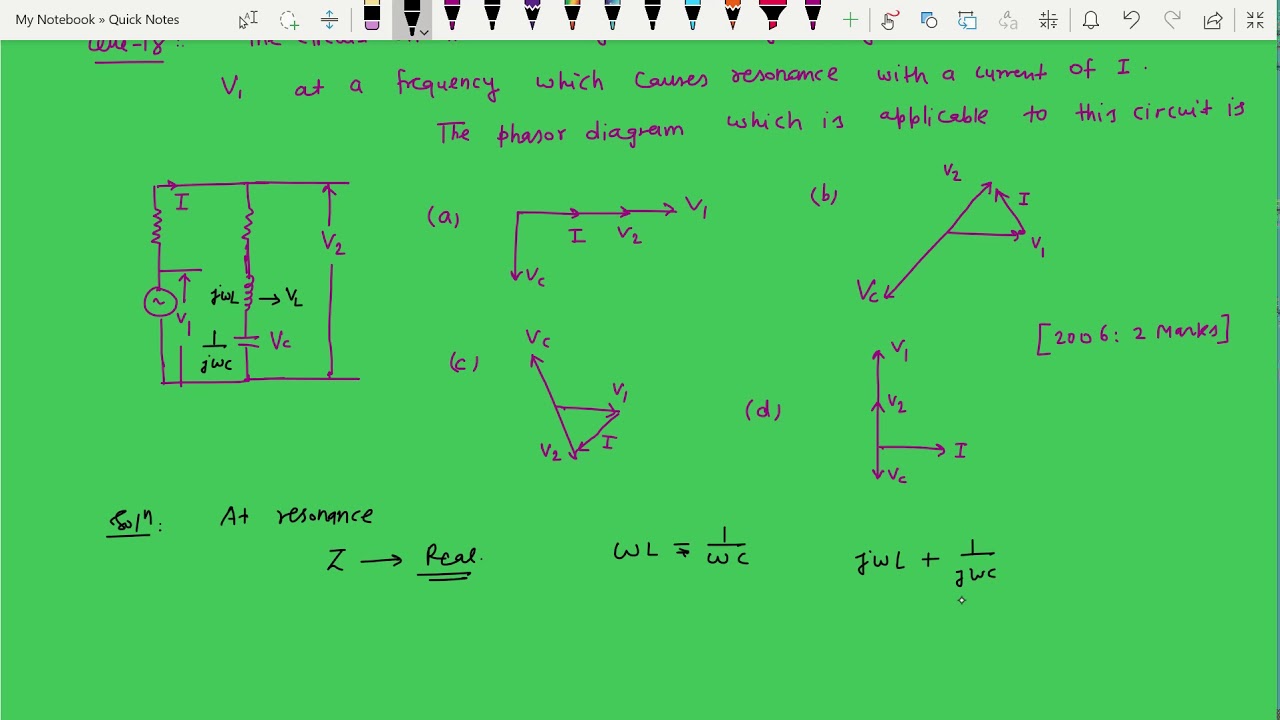 My Notebook » Quick Notes
V₁ at a frequency which causes resonance with a current of I.
The phasor diagram which is applicable to this circuit is
I
V₂
V₁
jωL → V_L
1/jωC
Vc
(a) I V₂ V₁ Vc
(b) V₂ I V₁ Vc
[2006: 2 Marks]
(c) Vc V₁ I V₂
(d) V₁ V₂ I Vc
Solⁿ: At resonance
Z → Real. ωL = 1/ωC jωL + 1/jωC